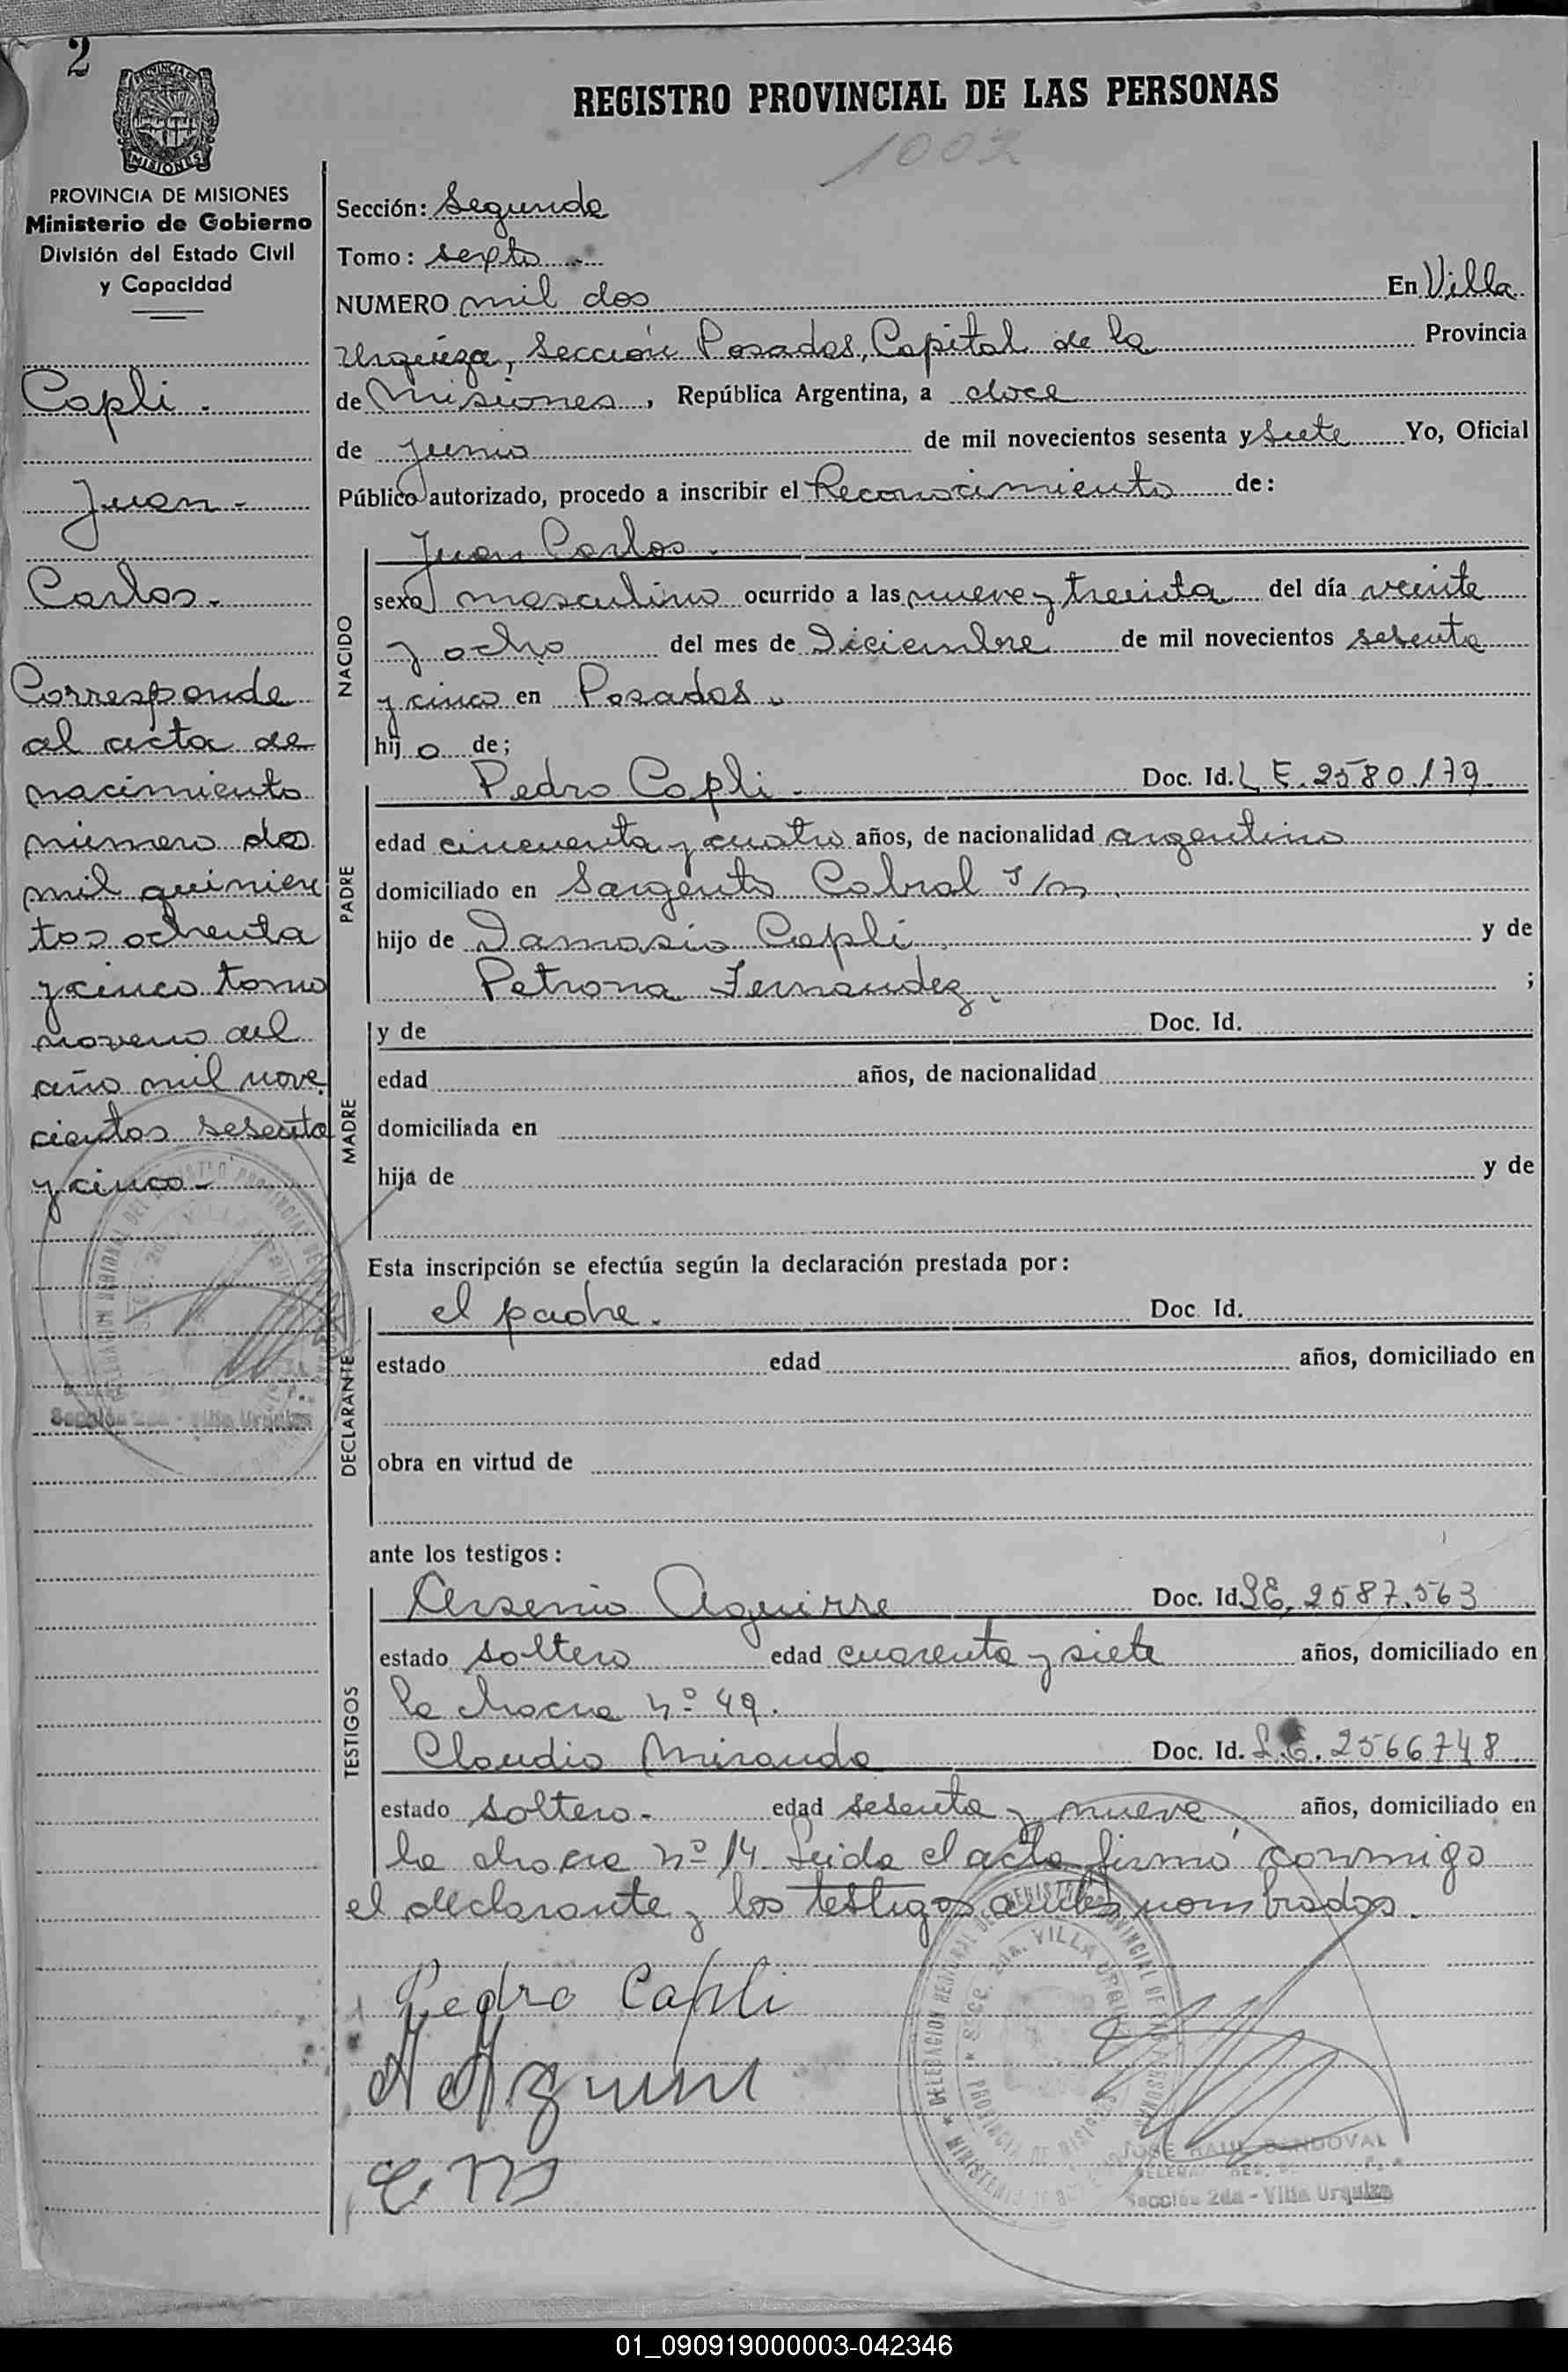 2
PROVINCIA DE MISIONES
Ministerio de Gobierno
División del Estado Civil
y Capacidad
Copli.
Juan.
Carlos.
Corresponde
al acta de
nacimiento
número dos
mil quinien
tos ochenta
y cinco tomo
noveno del
año mil nove
cientos sesenta
y cinco.
Sección 2da - Villa Urquiza
REGISTRO PROVINCIAL DE LAS PERSONAS
1002
Sección: Segunda
Tomo: sexto
NUMERO mil dos En Villa
Urquiza, Sección Posadas, Capital de la Provincia
de Misiones, República Argentina, a doce
de junio de mil novecientos sesenta y siete Yo, Oficial
Público autorizado, procedo a inscribir el Reconocimiento de:
NACIDO
Juan Carlos.
sexo masculino ocurrido a las nueve y treinta del día veinte
y ocho del mes de Diciembre de mil novecientos sesenta
y cinco en Posadas.
hijo de;
PADRE
Pedro Copli. Doc. Id. L.E. 2580.179.
edad cincuenta y cuatro años, de nacionalidad argentino
domiciliado en Sargento Cabral S/n.
hijo de Damasio Copli y de
Petrona Fernandez. ;
MADRE
y de Doc. Id.
edad años, de nacionalidad
domiciliada en
hija de y de
Esta inscripción se efectúa según la declaración prestada por:
DECLARANTE
el padre. Doc. Id.
estado edad años, domiciliado en
obra en virtud de
ante los testigos:
TESTIGOS
Arsenio Aguirre Doc. Id. L.E. 2587.563
estado soltero edad cuarenta y siete años, domiciliado en
la chacra nº 49.
Claudio Miranda Doc. Id. L.E. 2566748
estado soltero. edad sesenta y nueve años, domiciliado en
la chacra nº 14. Leida el acta firmó conmigo
el declarante y los testigos antes nombrados.
Pedro Copli
C M
DELEGACION REGIONAL DEL REGISTRO PROVINCIAL DE LAS PERSONAS
Secc. 2da. VILLA URQUIZA
PROVINCIA DE MISIONES
JOSE RAUL SANDOVAL
Sección 2da - Villa Urquiza
01_090919000003-042346